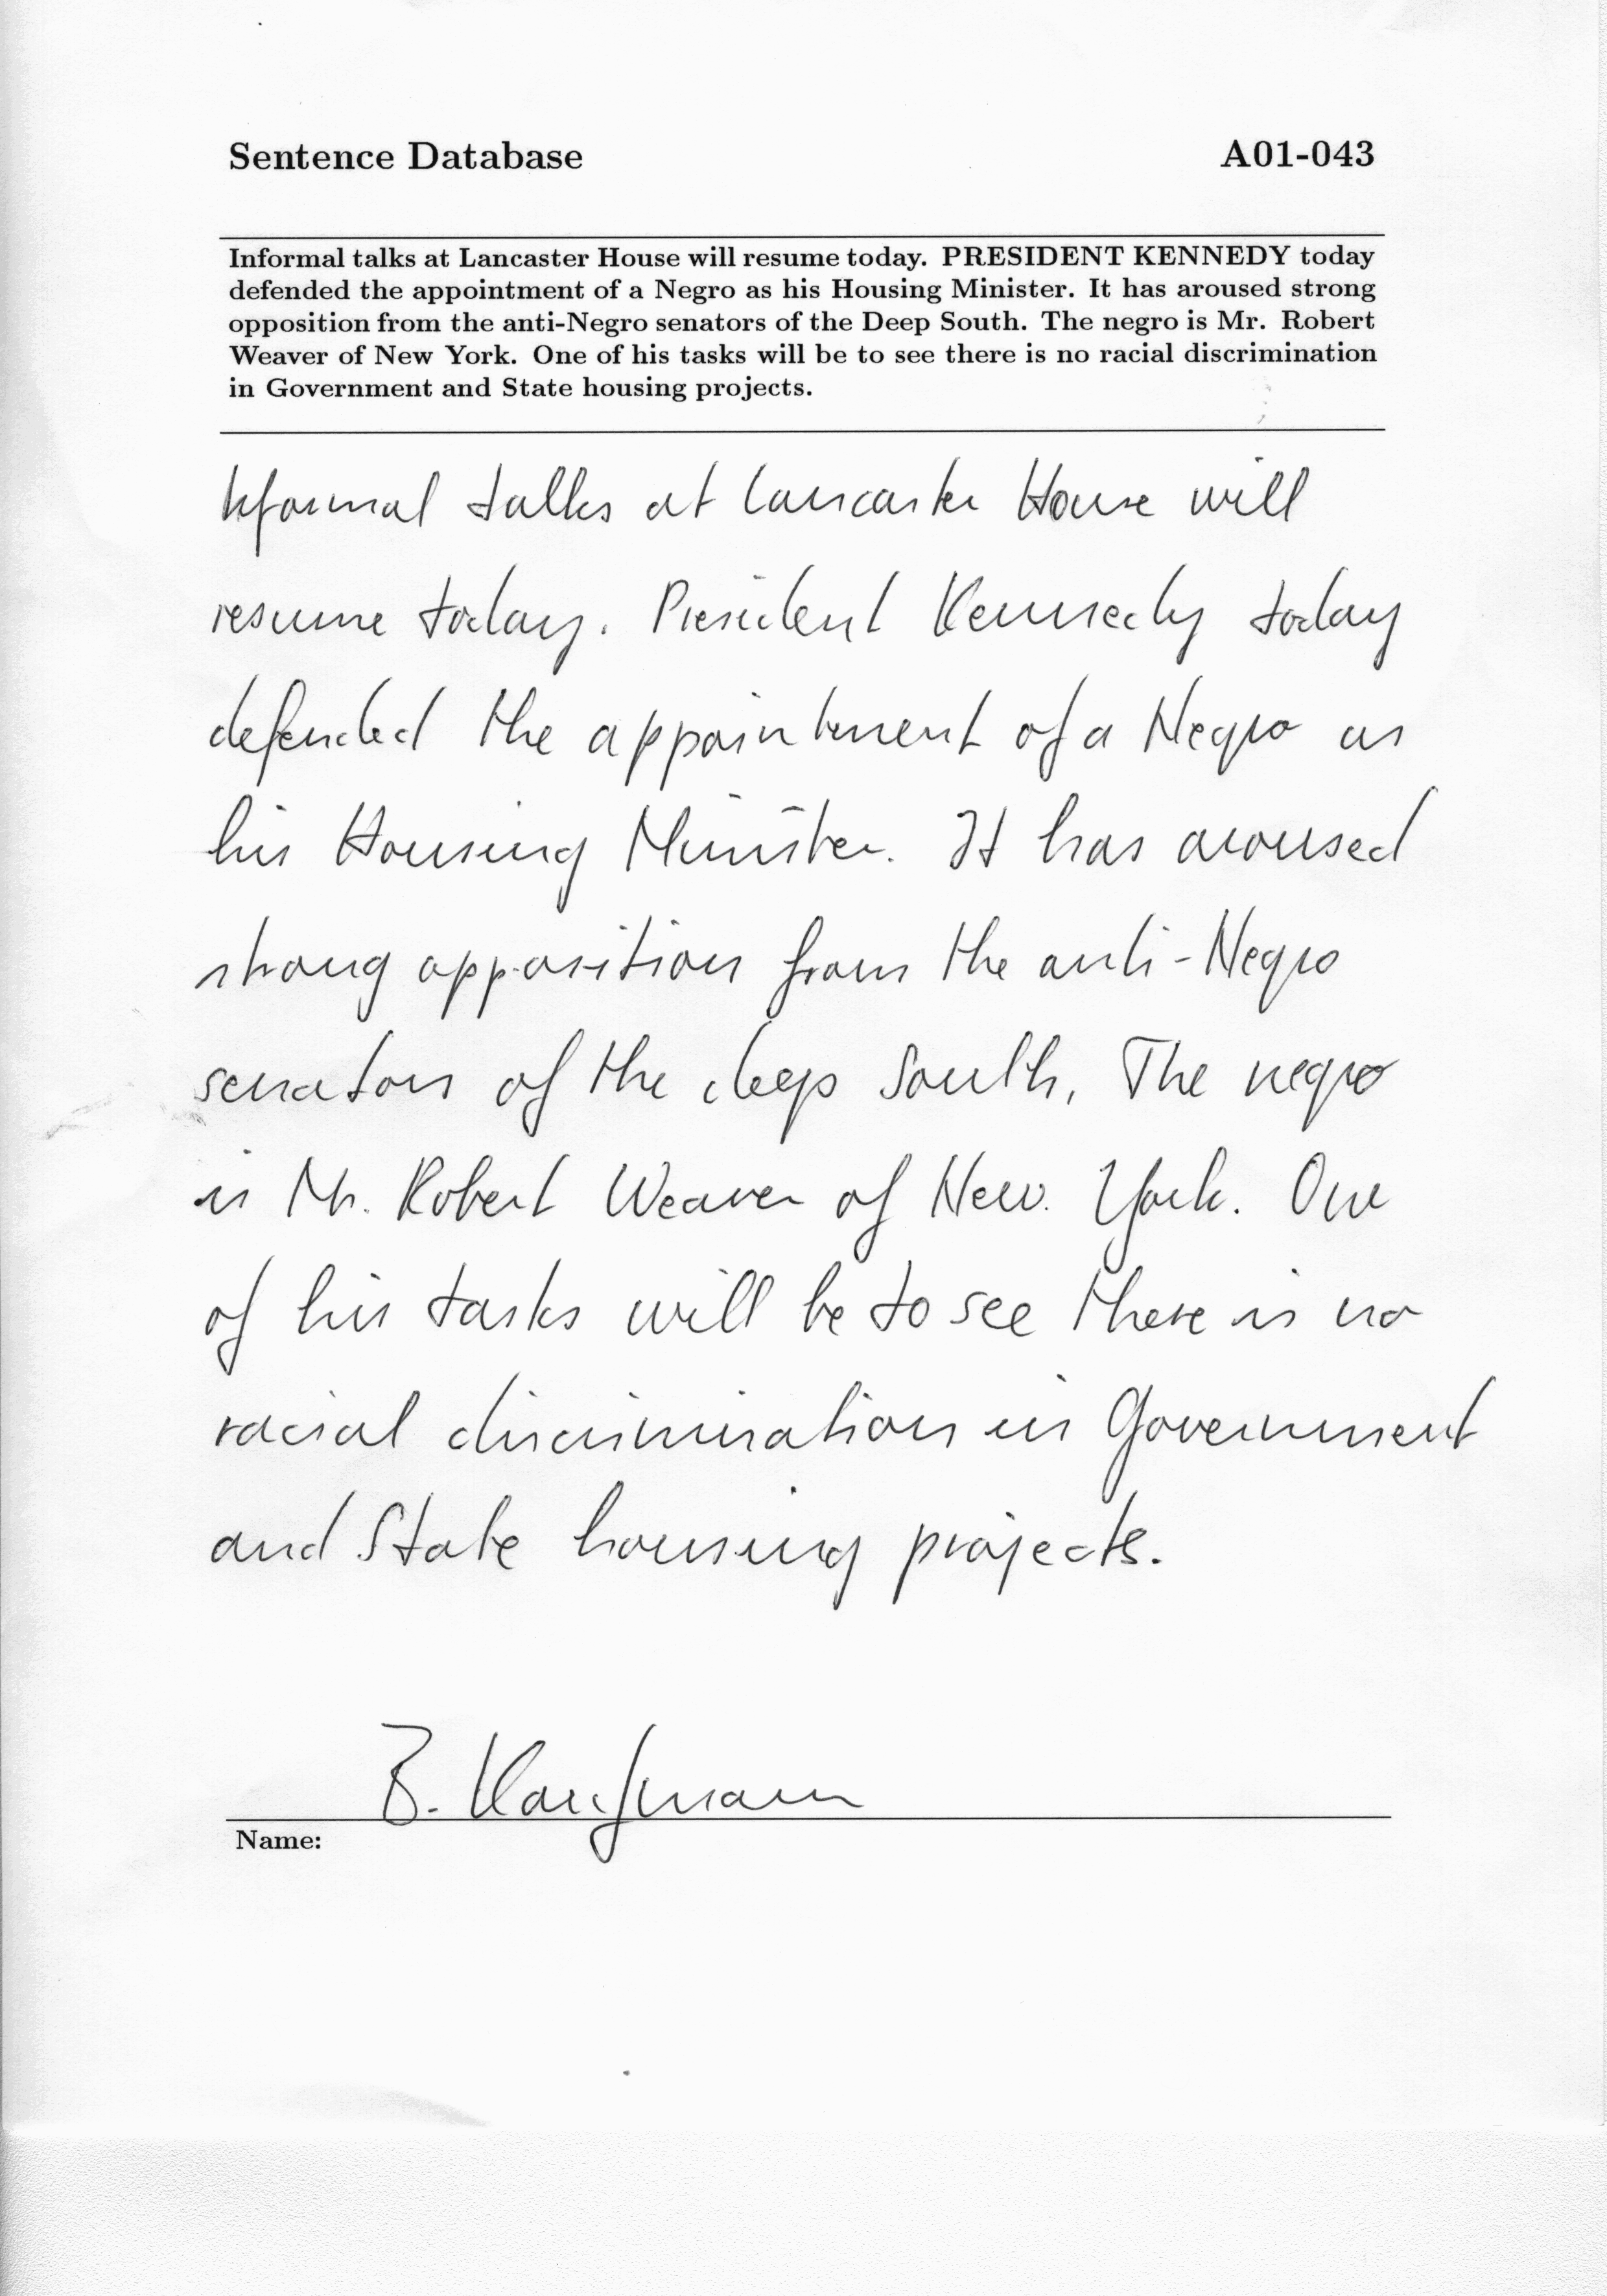 Sentence Database A01-043
Informal talks at Lancaster House will resume today. PRESIDENT KENNEDY today
defended the appointment of a Negro as his Housing Minister. It has aroused strong
opposition from the anti-Negro senators of the Deep South. The negro is Mr. Robert
Weaver of New York. One of his tasks will be to see there is no racial discrimination
in Government and State housing projects.
Informal talks at Lancaster House will
resume today. President Kennedy today
defended the appointment of a Negro as
his Housing Minister. It has aroused
strong opposition from the anti-Negro
senators of the deep South. The negro
is Mr. Robert Weaver of New. York. One
of his tasks will be to see there is no
racial discrimination in Government
and State housing projects.
B. Kaufmann
Name: